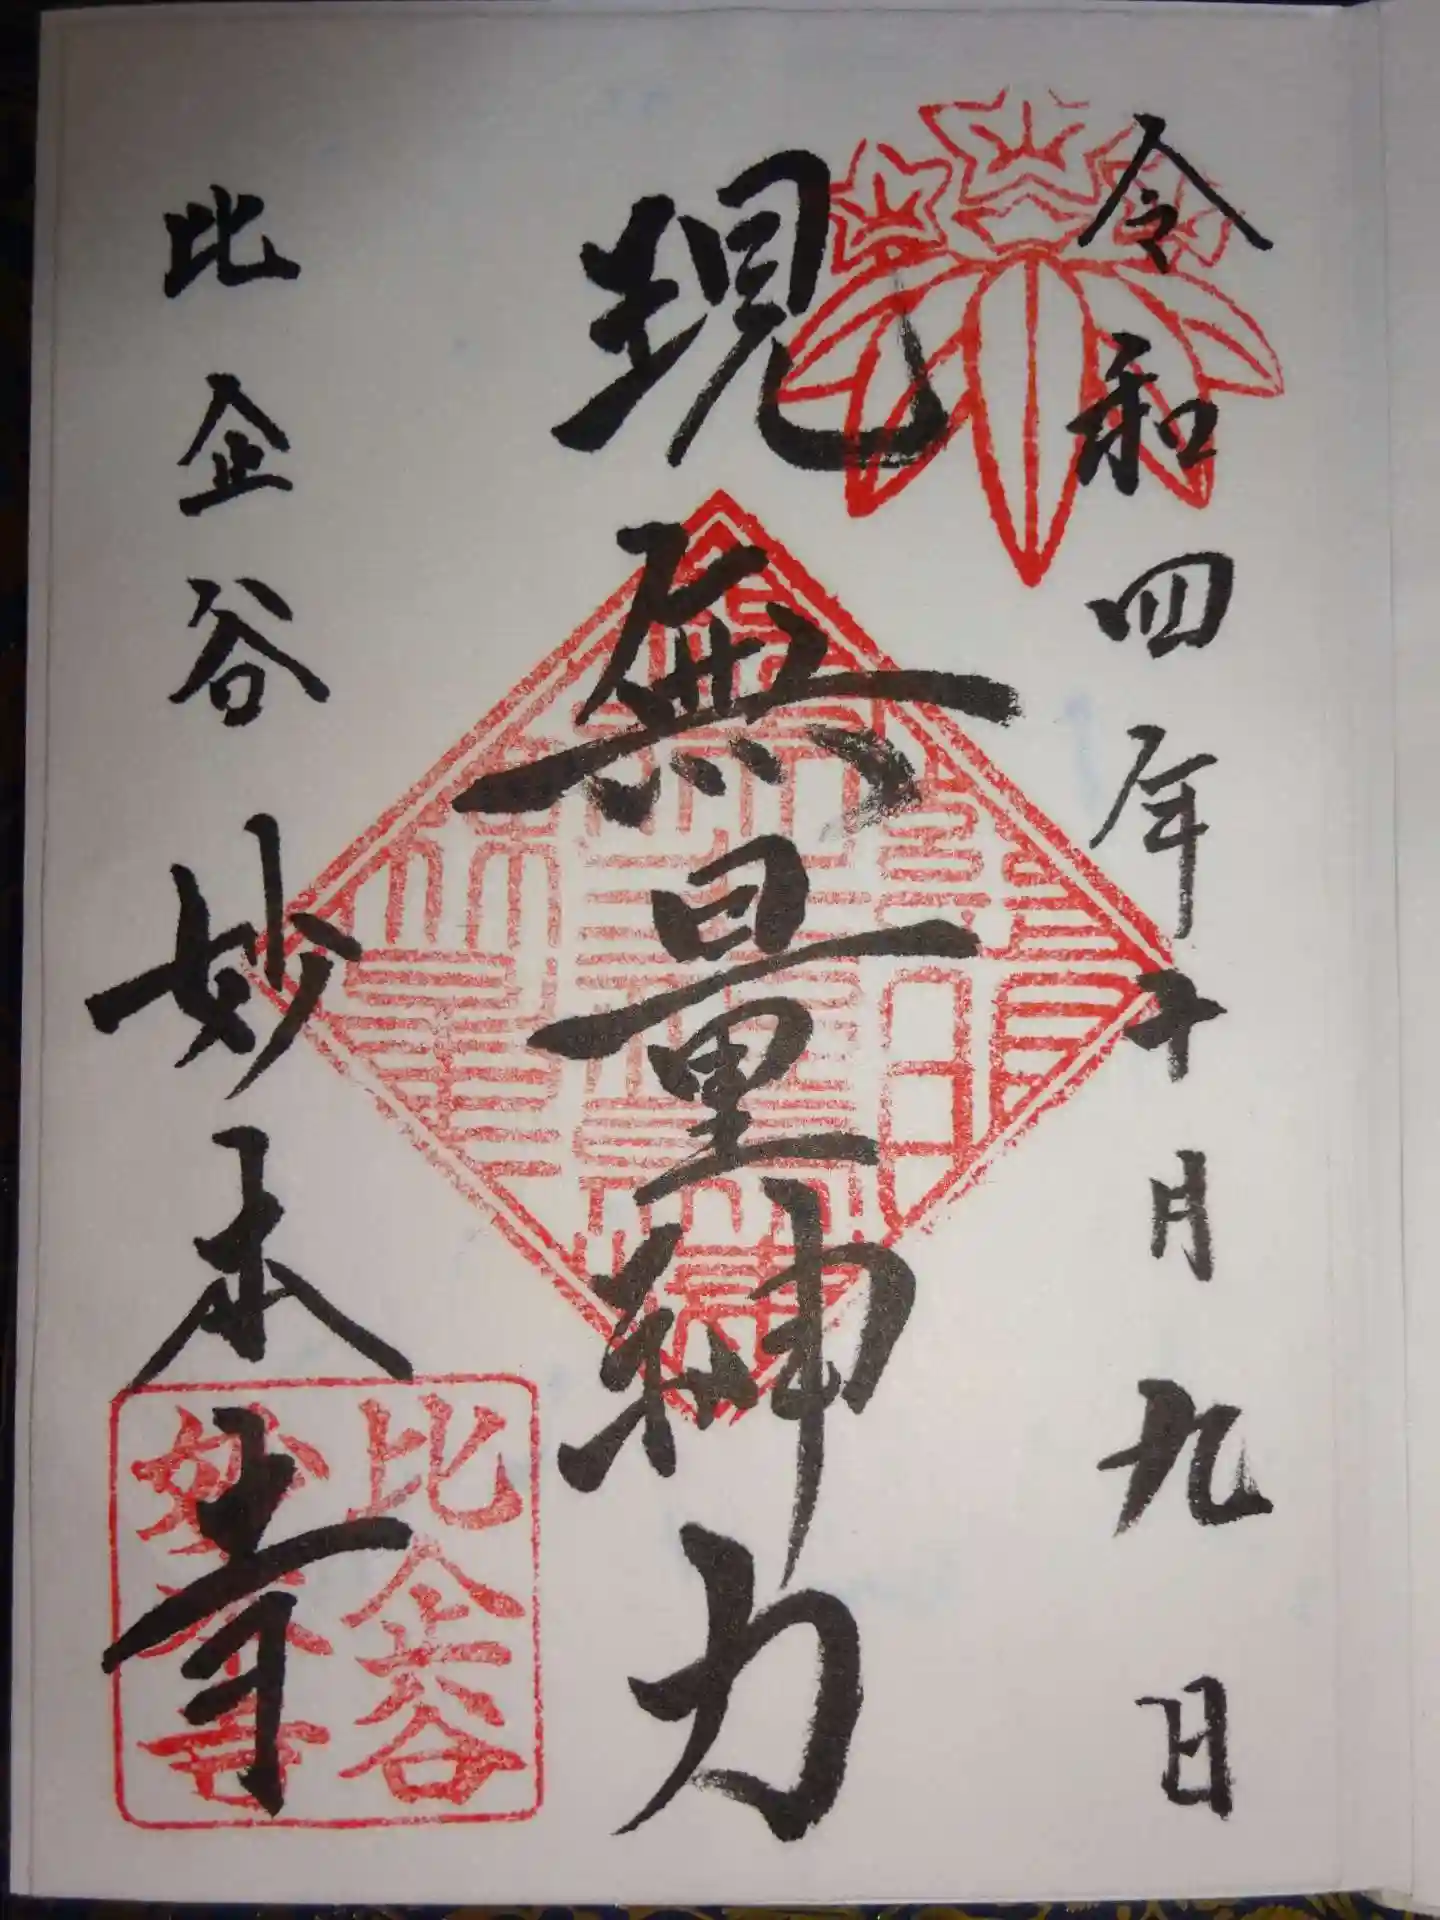 令和四年十月九日
現無量神力
比企谷妙本寺
比企谷
妙本寺